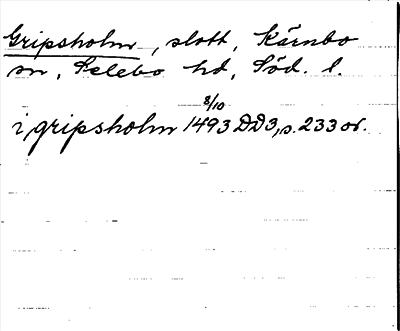 Gripsholm, slott, Kärnbo
sn, Selebo hd, Söd. l.
8/10
i gripsholm 1493 DD3, s. 233 or.